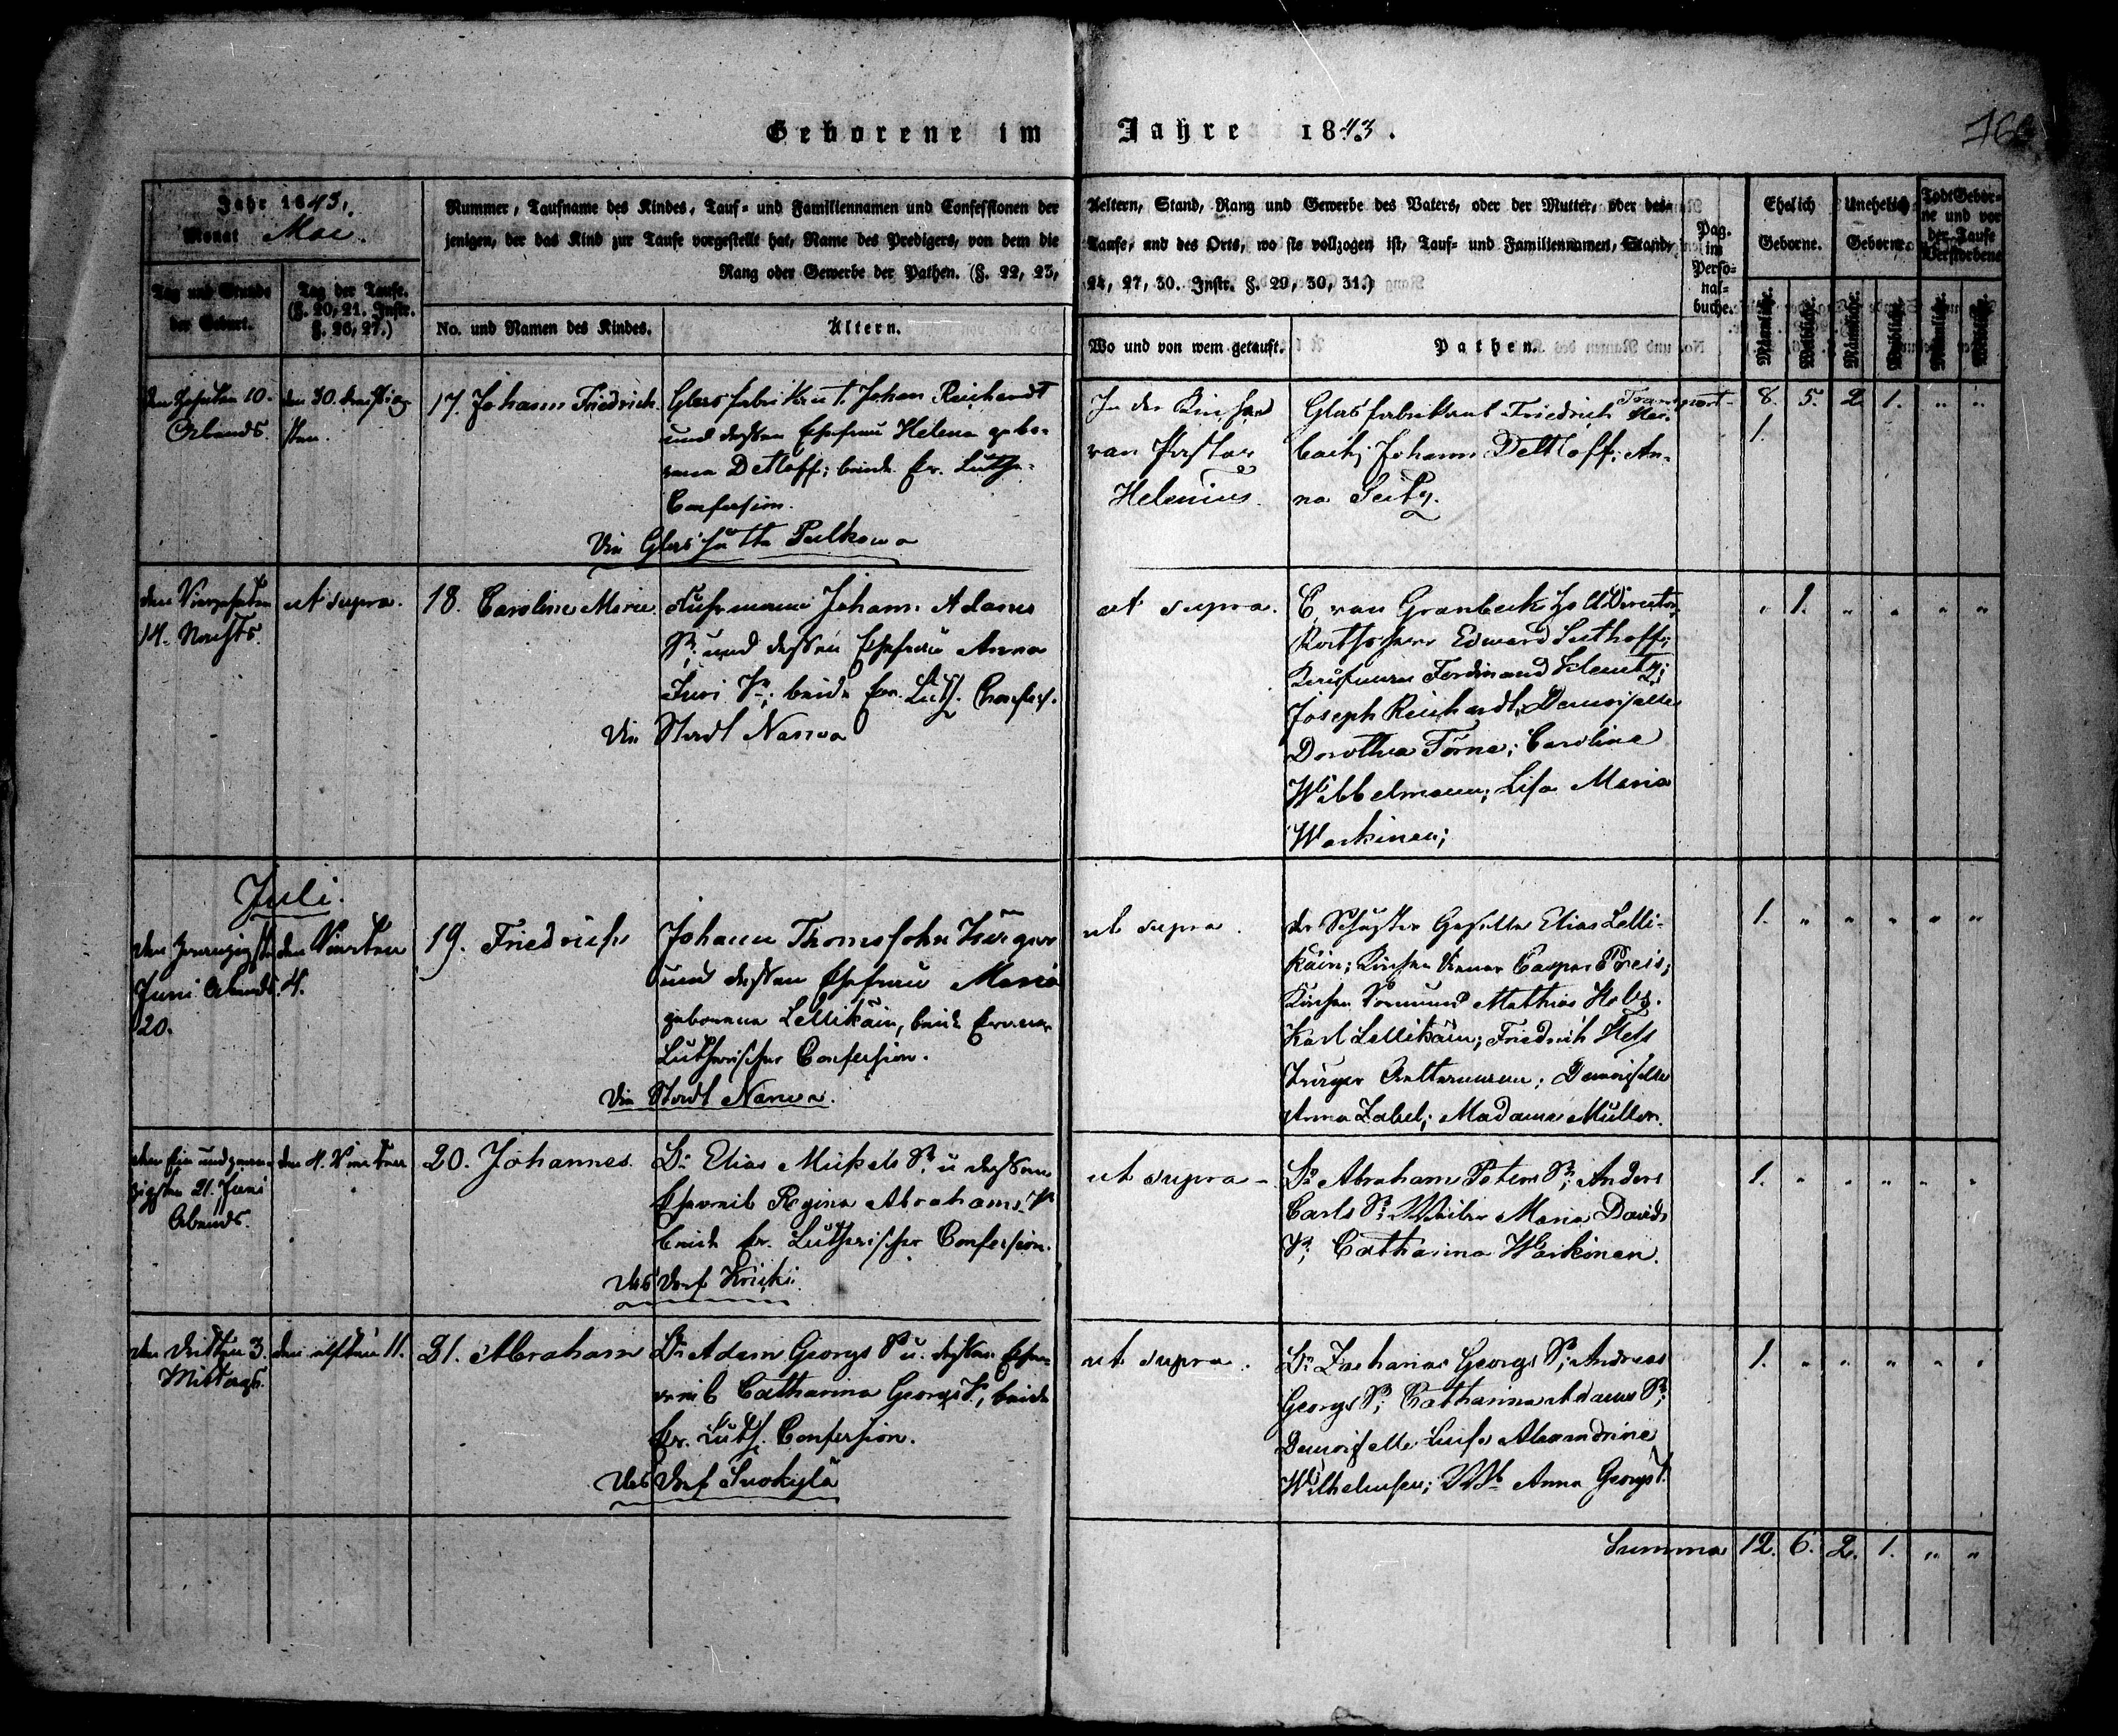 Geborene im Jahre 1843.
Jahr 1843.
Monat Mai.
Tag und Stunde der Geburt.
Tag der Taufe. (§. 20, 21. Instr. §. 26, 27.)
Nummer, Taufname des Kindes, Tauf- und Familiennamen und Confessionen der Aeltern, Stand, Rang und Gewerbe des Vaters, oder der Mutter, oder des-
jenigen, der das Kind zur Taufe vorgestellt hat, Name des Predigers, von dem die Taufe, und des Orts, wo sie vollzogen ist, Tauf- und Familiennamen, Stand,
Rang oder Gewerbe der Pathen. (§. 22, 23, 24, 27, 30. Instr. §. 29, 30, 31.)
No. und Namen des Kindes.
Ältern.
Wo und von wem getauft.
Pathen.
Pag. im Perso-nal-buche.
Ehelich Geborne.
Unehelich Geborne.
Todt Gebor-ne und vor der Taufe Verstorbene
Männliche. Weibliche. Männliche. Weibliche. Männliche. Weibliche.
den Zehnten 10.
Abends.
den 30. dreißig-
sten.
17. Johann Friedrich.
Glasfabrikant Johan Reichardt
und dessen Ehefrau Helena gebo-
rene Detloff; beide Ev. Luthe-
Confession.
Die Glashütte Pulkowa
In der Kirche
von Pastor
Helenius.
Glasfabrikant Friedrich
bach; Johann Dettloff; An-
na Seitz.
Transport 8. 5. 2. 1. " "
1.
den Vierzehnten
14. Nachts.
ut supra.
18. Caroline Marie.
Fuhrmann Johann Adams
S. und dessen Ehefrau Anna
Juri T.; beide Ev. Luth. Confess.
Die Stadt Narwa
ut supra.
C. von Granbeck Zoll Director,
Rathsherr Edward Suthoff;
Kaufmann Ferdinand
Joseph Reichardt; Demoiselle
Dorothea Törne; Caroline
Wibbelmann; Lisa Maria
Warkinen;
" 1. " " " "
Juli.
den Zwanzigsten
Juni Abends
20.
den Vierten
4.
19. Friedrich
Johann Thomssohn
und dessen Ehefrau Maria
geborene Lellikäin, beide Evang.
Lutherischer Confession.
Die Stadt Narwa.
ut supra.
der Schuster Geselle Elias Lelli-
käin; Kirchen Diener Caspar Preis;
Kirchen Vormund Mathias Holz.
Karl Lellikäin; Friedrich Hess
Aeltermann; Demoiselle
Anna Zabel; Madame Müller.
1. " " " " "
den Ein und zwan-
zigsten 21. Juni
Abends.
den 4. Vierten
20. Johannes.
Br. Elias Mickels S. u. dessen
Eheweib Regina Abrahams T.
beide Ev. Lutherischer Confession.
Das Dorf
ut supra -
Br. Abraham Peters S.; Anders
Carls S. Weiber Maria Davids
T.; Catharina Warkonen.
1. " " " " "
den dritten 3.
Mittags.
den elften 11.
21. Abraham
Br. Adam Georgs S. u. dessen Ehe-
weib Catharina Georgs T., beide
Ev. Luth. Confession.
Das Dorf Suokylä
ut supra.
Br. Zacharias Georgs S.; Andreas
Georgs S.; Catharina Adams
Demoiselle Luise Alexandrine
Wilhelmsen; Wb. Anna Georgs T.
1. " " " " "
Summa 12. 6. 2. 1. " "